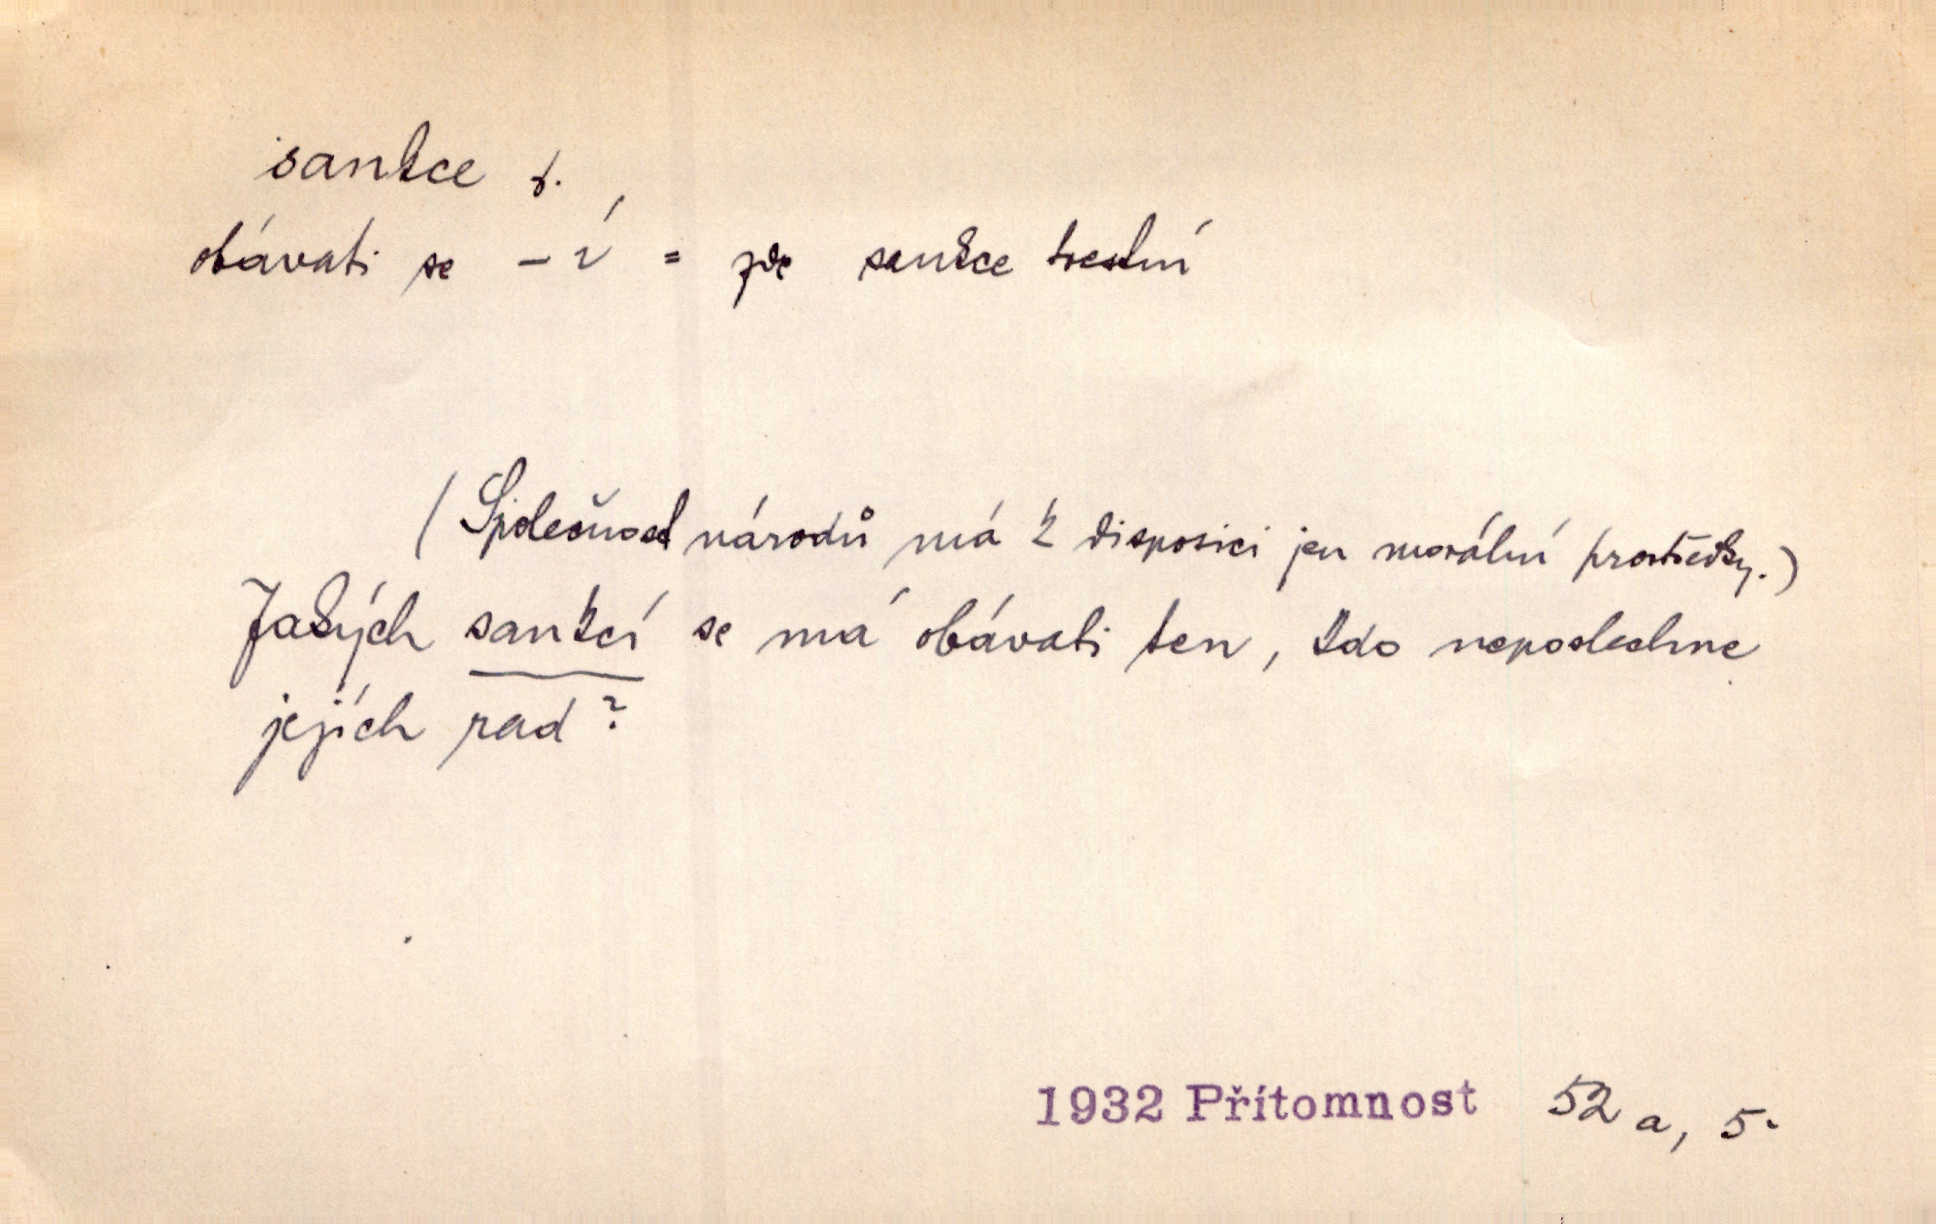 sankce f.
obávati se – í = zde sankce trestní
(Společnost národů má k disposici jen morální prostředky.)
Jakých sankcí se má obávati ten, kdo neposlechne
jejích rad?
1932 Přítomnost 52 a, 5.